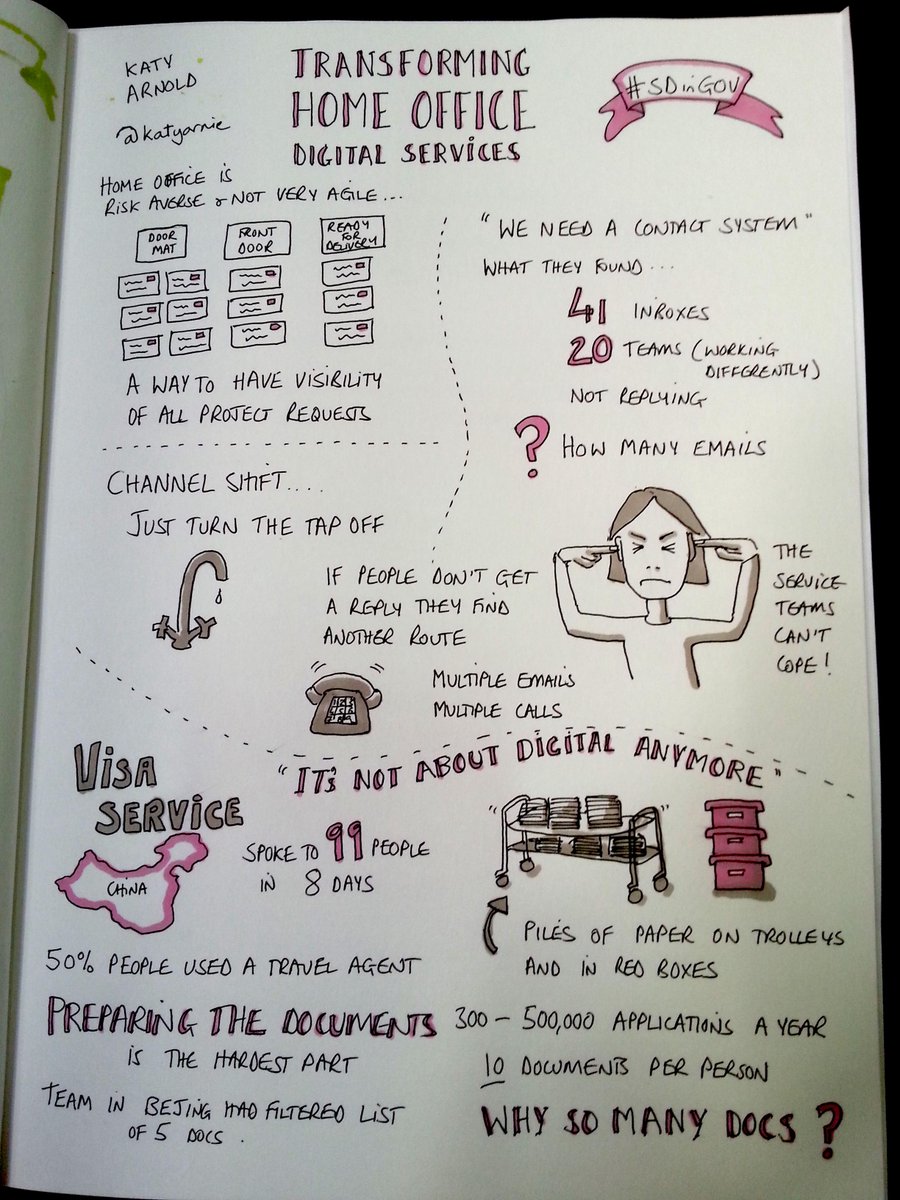 KATY
ARNOLD
@katyarnie
TRANSFORMING
HOME OFFICE
DIGITAL SERVICES
#SDinGOV
HOME OFFICE IS
RISK AVERSE & NOT VERY AGILE...
DOOR
MAT
FRONT
DOOR
READY
FOR
DELIVERY
A WAY TO HAVE VISIBILITY
OF ALL PROJECT REQUESTS
"WE NEED A CONTACT SYSTEM"
WHAT THEY FOUND...
41 INBOXES
20 TEAMS (WORKING
DIFFERENTLY)
NOT REPLYING
? HOW MANY EMAILS
THE
SERVICE
TEAMS
CAN'T
COPE!
CHANNEL SHIFT....
JUST TURN THE TAP OFF
IF PEOPLE DON'T GET
A REPLY THEY FIND
ANOTHER ROUTE
MULTIPLE EMAILS
MULTIPLE CALLS
"IT'S NOT ABOUT DIGITAL ANYMORE"
VISA
SERVICE
CHINA
SPOKE TO 99 PEOPLE
IN 8 DAYS
50% PEOPLE USED A TRAVEL AGENT
PREPARING THE DOCUMENTS
IS THE HARDEST PART
TEAM IN BEJING HAD FILTERED LIST
OF 5 DOCS.
PILES OF PAPER ON TROLLEYS
AND IN RED BOXES
300 - 500,000 APPLICATIONS A YEAR
10 DOCUMENTS PER PERSON
WHY SO MANY DOCS?